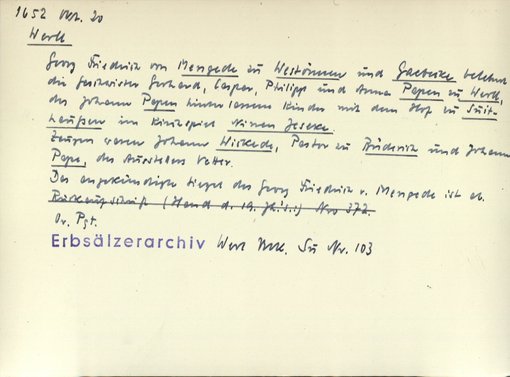 1652 Okt. 20
Werl
Georg Friedrich von Mengede zu Westönnen und Gaebecke belehnt
die Geschwister Gerhard, Caspar, Philipp und Anna Papen zu Werl,
des Johann Papen hinterlassene Kinder mit dem Hof zu
haußen im Kirchspiel
Zeugen waren Johann Wickede, Pastor zu Büderich und Johann
Pape, des Ausstellers Vetter.
Das angekündigte Siegel des Georg Friedrich v. Mengede ist ab.
Rückaufschrift (Hand d. 19. Jh's.:) Nro 372.
Or. Pgt.
Erbsälzerarchiv Werl Urk. Nr. 103